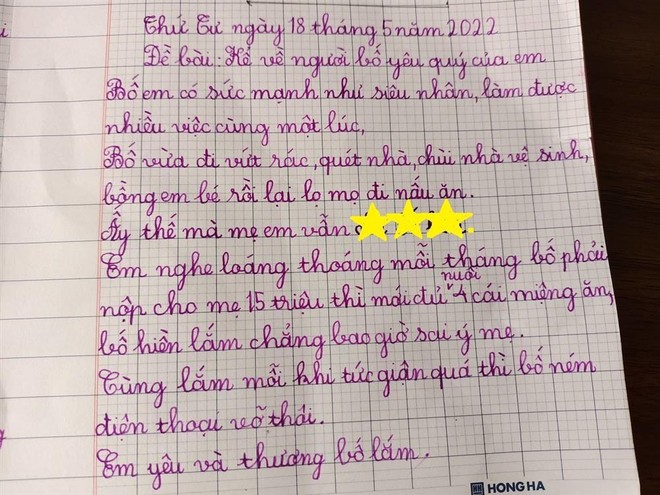 Thứ Tư ngày 18 tháng 5 năm 2022
Đề bài: Kể về người bố yêu quý của em
Bố em có sức mạnh như siêu nhân, làm được
nhiều việc cùng một lúc,
Bố vừa đi vứt rác, quét nhà, chùi nhà vệ sinh,
bồng em bé rồi lại lọ mọ đi nấu ăn.
Ấy thế mà mẹ em vẫn
Em nghe loáng thoáng mỗi tháng bố phải
nộp cho mẹ 15 triệu thì mới đủ nuôi 4 cái miệng ăn,
bố hiền lắm chẳng bao giờ sai ý mẹ.
Cùng lắm mỗi khi tức giận quá thì bố ném
điện thoại vỡ thôi.
Em yêu và thương bố lắm.
HONG HA